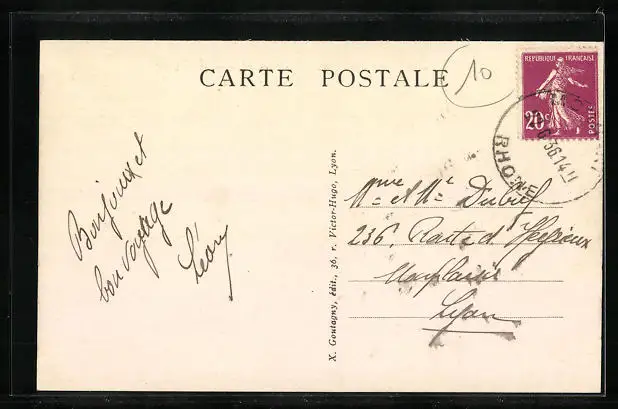 CARTE POSTALE
10
REPUBLIQUE FRANÇAISE
20c
POSTES
36.14
RHONE
Bonjour et
bon voyage
Léon
X. Goutagny, édit., 36, r. Victor-Hugo, Lyon.
Mme et Mr Dubref
236, Route d'Heyrieux
Monplaisir
Lyon